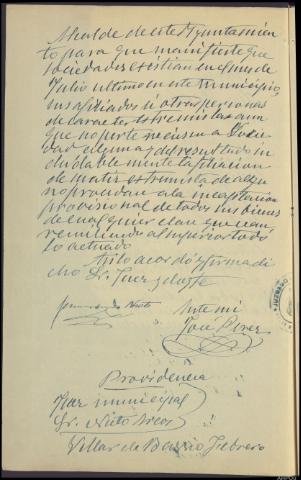 Alcalde de este Ayuntamien
to para que manifieste que
sociedades existian en el mes de
Julio ultimo en este Municipio,
sus afiliados u otras personas
de caracter extremista aun
que no pertenecieran a Socie
dad alguna y del resultado in
dudablemente la filiacion
de matiz extremista de
no procedan a la incautacion
provisional de todos sus bienes
de cualquier clase que sean
remitiendo al superior todo
lo actuado
Asi lo acordó y firma di
cho Sr. Juez y doy fe
Ante mi
José Perez
Providencia
Juez municipal
Sr. Nieto Arcos
Villar de Barrio Febrero